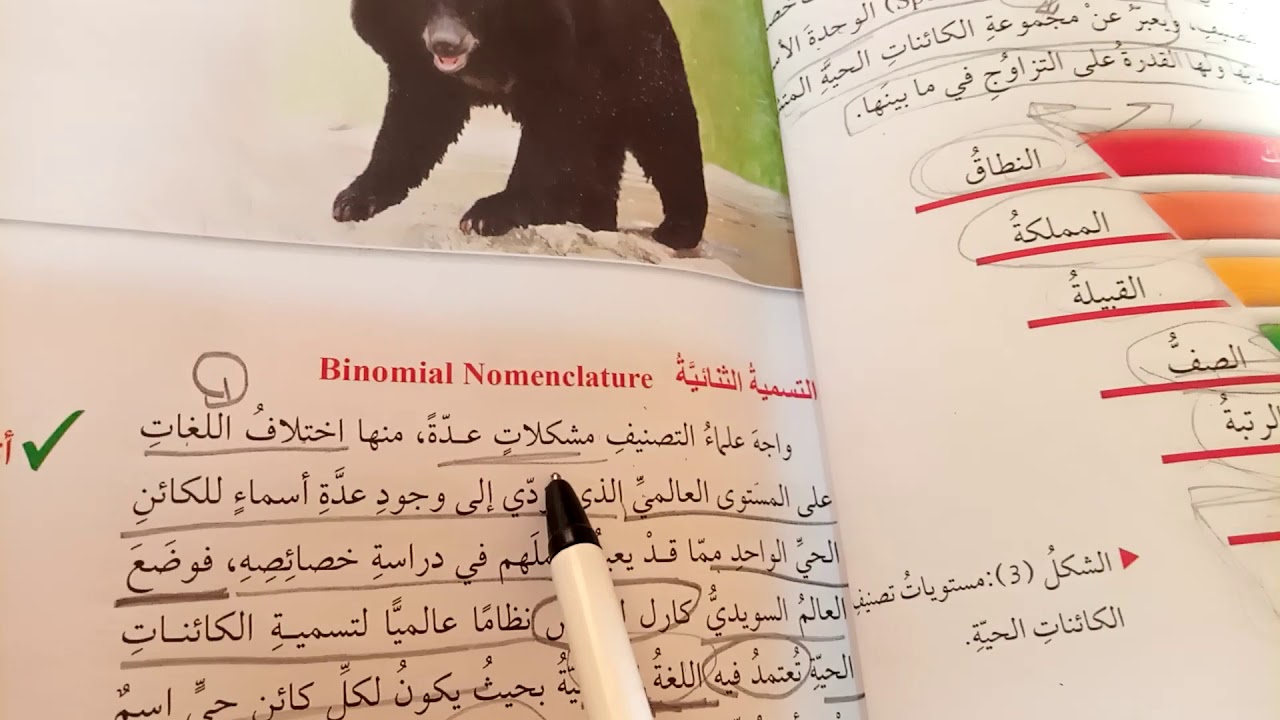 الوحدةَ
ويعبرُ عنْ مجموعةِ الكائناتِ الحيَّةِ
ولها القدرةُ على التزاوُجِ في ما بينَها.
النطاقُ
المملكةُ
القبيلةُ
الصفُّ
الرتبةُ
الشكلُ (3): مستوياتُ تصنيفِ
الكائناتِ الحيّةِ.
التسميةُ الثنائيَّةُ Binomial Nomenclature
واجهَ علماءُ التصنيفِ مشكلاتٍ عدّةً، منها اختلافُ اللغاتِ
على المستوى العالميِّ إلى وجودِ عدَّةِ أسماءٍ للكائنِ
الحيِّ الواحدِ ممّا قدْ في دراسةِ خصائِصِهِ، فوضَعَ
العالمُ السويديُّ كارل نظامًا عالميًّا لتسميةِ الكائناتِ
الحيّةِ تُعتمدُ فيه اللغةُ بحيثُ يكونُ لكلِّ كائنٍ حيٍّ اسمٌ